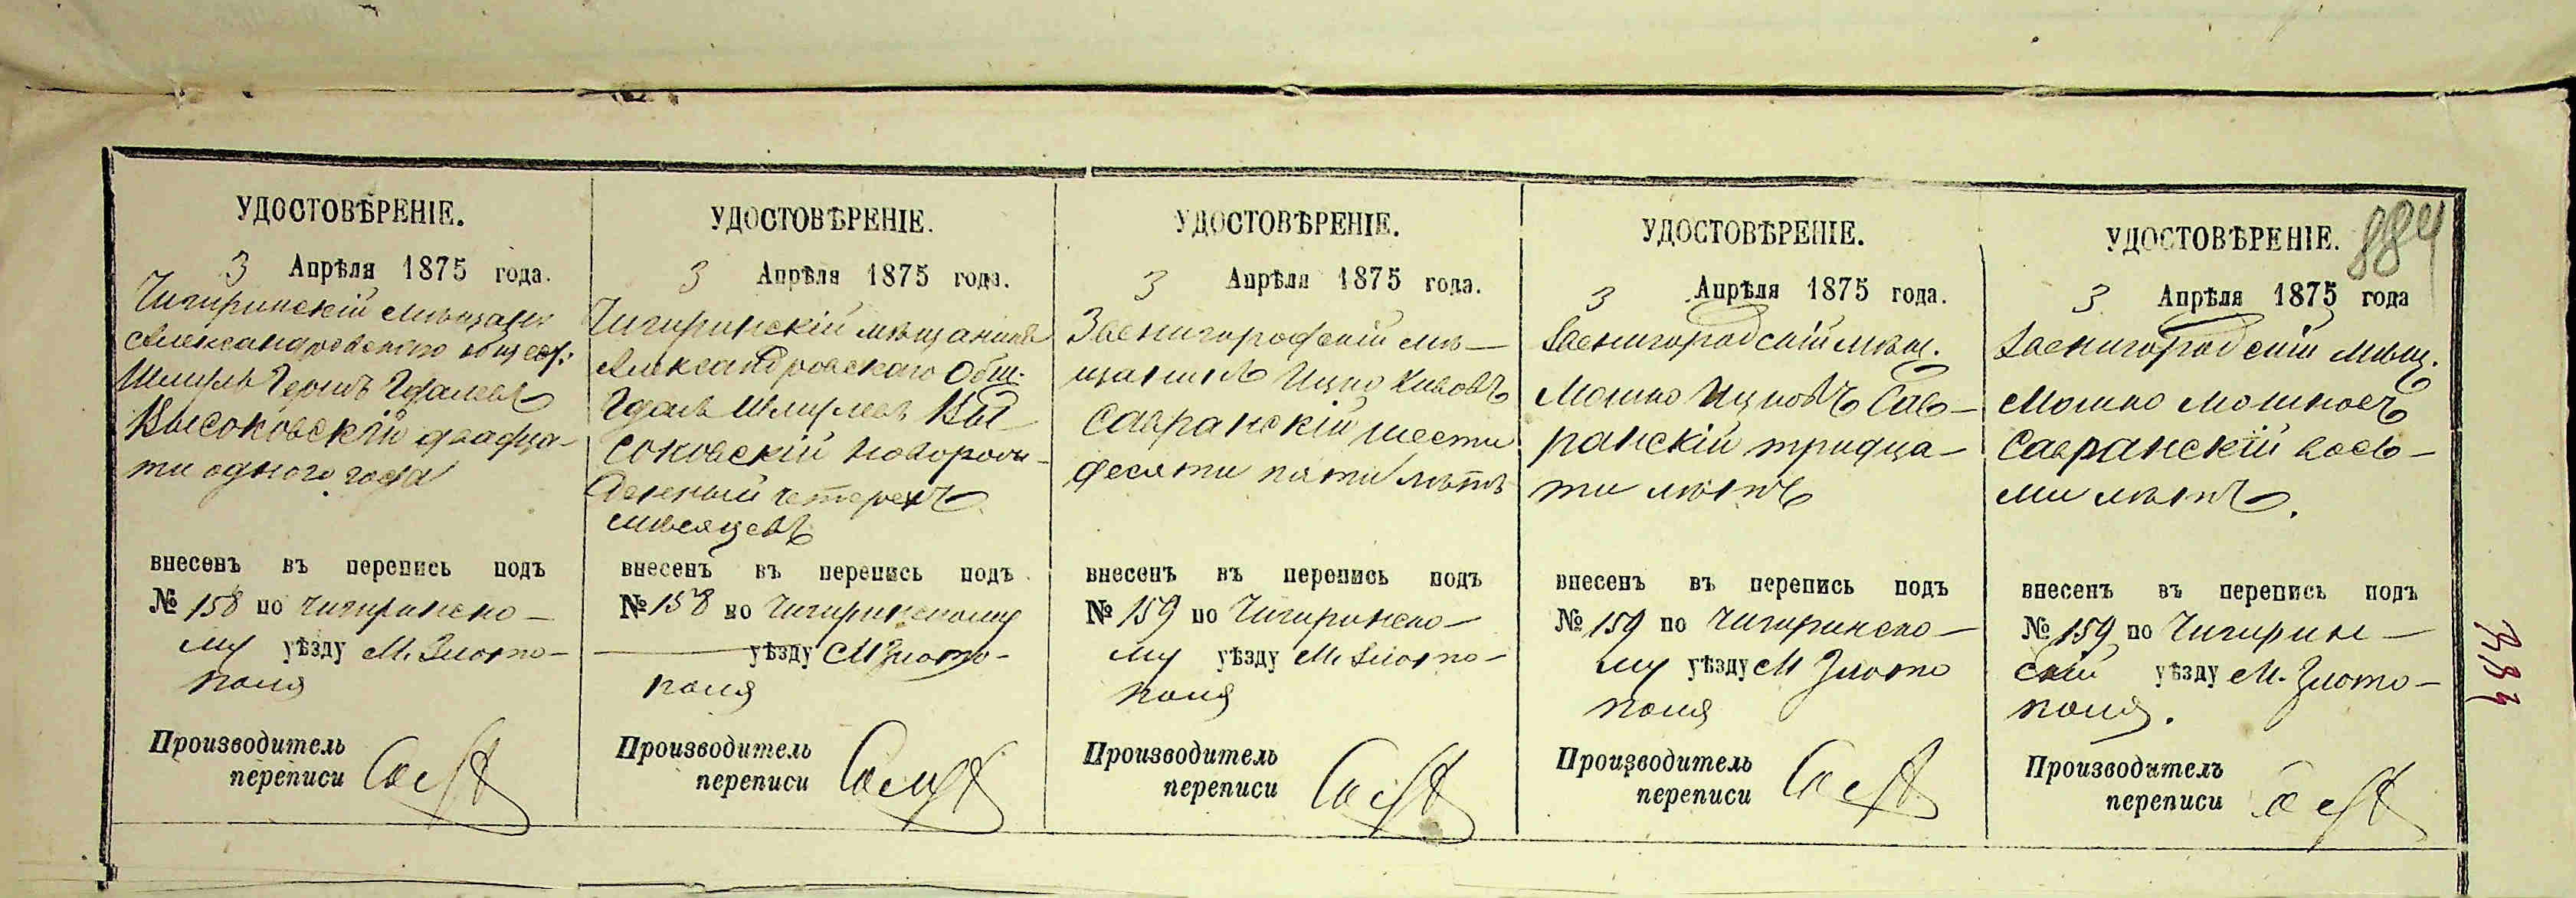 884
УДОСТОВѢРЕНІЕ.
3 Апрѣля 1875 года.
Чигиринскій мѣщанин
Александровскаго общест:
Шмуль Гершъ Гдалев
Высоковскій двадца-
ти одного года
внесенъ въ перепись подъ
№ 158 по Чигиринско-
му уѣзду М. Злото-
поля
Производитель
переписи
УДОСТОВѢРЕНІЕ.
3 Апрѣля 1875 года.
Чигиринскій мѣщанинъ
Александровскаго Общ.
Гдаль Шмулев Вы
соковскій новорож-
денный четерехъ
мѣсяцевъ
внесенъ въ перепись подъ
№ 158 по Чигиринскому
уѣзду М Злото-
поля
Производитель
переписи
УДОСТОВѢРЕНІЕ.
3 Апрѣля 1875 года.
Звенигородскій мѣ-
щанинъ Ицко
Савранскій шести
десяти пяти лѣтъ
внесенъ въ перепись подъ
№ 159 по Чигиринско-
му уѣзду М. Злото-
поля
Производитель
переписи
УДОСТОВѢРЕНІЕ.
3 Апрѣля 1875 года.
Звенигородскій мѣщ.
Мошко Ицковъ Сав-
ранскій тридца-
ти лѣтъ
внесенъ въ перепись подъ
№ 159 по Чигиринско-
му уѣзду М Злото
поля
Производитель
переписи
УДОСТОВѢРЕНІЕ.
3 Апрѣля 1875 года
Звенигородскій мѣщ.
Мошко Мошковъ
Савранскій вось-
ми лѣтъ.
внесенъ въ перепись подъ
№ 159 по Чигирин-
ский уѣзду М. Злото-
поля.
Производитель
переписи